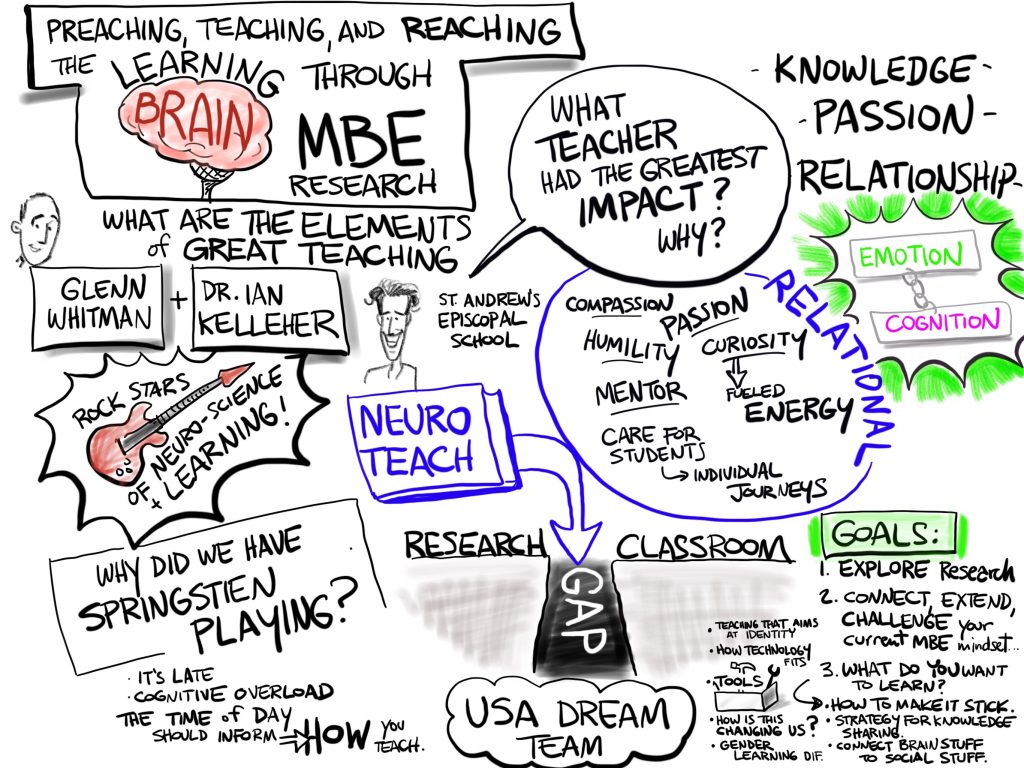 PREACHING, TEACHING, AND REACHING
THE LEARNING THROUGH
BRAIN
MBE
RESEARCH
WHAT ARE THE ELEMENTS
of GREAT TEACHING
GLENN
WHITMAN
+
DR. IAN
KELLEHER
ROCK STARS
OF NEURO-SCIENCE
+ LEARNING!
WHY DID WE HAVE
SPRINGSTIEN
PLAYING?
• IT'S LATE
• COGNITIVE OVERLOAD
THE TIME of DAY
SHOULD INFORM
HOW YOU
TEACH.
WHAT
TEACHER
HAD THE GREATEST
IMPACT?
WHY?
ST. ANDREW'S
EPISCOPAL
SCHOOL
NEURO
TEACH
RELATIONAL
COMPASSION
PASSION
HUMILITY
CURIOSITY
MENTOR
FUELED
ENERGY
CARE FOR
STUDENTS
INDIVIDUAL
JOURNEYS
- KNOWLEDGE -
- PASSION -
RELATIONSHIP -
EMOTION
COGNITION
RESEARCH
CLASSROOM
GAP
USA DREAM
TEAM
• TEACHING THAT AIMS
AT IDENTITY
• HOW TECHNOLOGY
FITS
• TOOLS
• HOW IS THIS
CHANGING US?
• GENDER
LEARNING DIF.
GOALS:
1. EXPLORE Research
2. CONNECT, EXTEND,
CHALLENGE your
current MBE mindset...
3. WHAT DO YOU WANT
TO LEARN?
• HOW TO MAKE IT STICK.
• STRATEGY FOR KNOWLEDGE
SHARING.
• CONNECT BRAIN STUFF
TO SOCIAL STUFF.